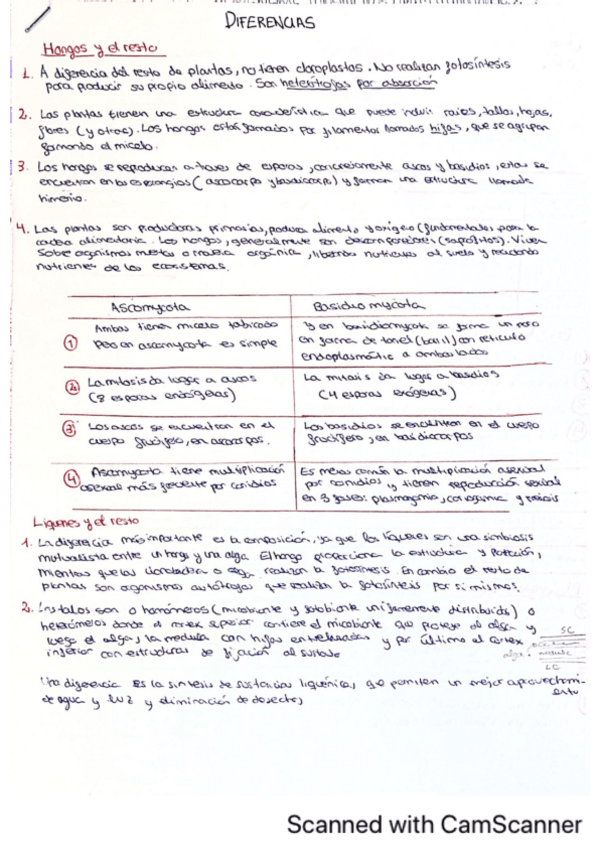 DIFERENCIAS
Hongos y el resto
1. A diferencia del resto de plantas, no tienen cloroplastos. No realizan fotosíntesis
para producir su propio alimento. Son heterótrofos por absorción
2. Las plantas tienen una estructura característica que puede incluir raíces, tallos, hojas,
flores (y otros). Los hongos están formados por filamentos llamados hifas, que se agrupan
formando el micelio.
3. Los hongos se reproducen a traves de esporas, concretamente ascas y basidios, estas se
encuentran en los esporangios (ascocarpo y basidiocarpo) y forman una estructura llamada
himenio.
4. Las plantas son productoras primarias, produce alimento y oxígeno (fundamentales para la
cadea alimentaria. Los hongos, generalmente son descomponedores (saprófitos). Viven
sobre organismos muertos o materia orgánica, liberando nutrientes al suelo y reciclando
nutrientes de los ecosistemas.
Ascomycota Basidiomycota
① Ambas tienen micelio tabicado Y en basidiomycota se forma un poro
pero en ascomycota es simple en forma de tonel (barril) con retículo
endoplasmático a ambos lados
② La mitosis da lugar a ascos La mitosis da lugar a basidios
(8 esporas endógenas) (4 esporas exógenas)
③ Los ascos se encuentran en el Los basidios se encuentran en el cuerpo
cuerpo fructífero, en ascocarpos. fructífero, en basidiocarpos
④ Ascomycota tiene multiplicación Es menos común la multiplicación asexual
asexual más frecuente por conidios por conidios, y tienen reproducción sexual
en 3 fases: plasmogamia, cariogamia y meiosis
Liquenes y el resto
1. La diferencia más importante es la composición, ya que los líquenes son una simbiosis
mutualista entre un hongo y una alga. El hongo proporciona la estructura y protección,
mientras que las o alga realizan la fotosíntesis. En cambio el resto de
plantas son organismos autótrofos que realizan la fotosíntesis por si mismos.
2. Los talos son o homómeros (micobionte y fotobionte uniformemente distribuidos) o
heterómeros donde el cortex superior contiene el micobionte que protege el alga y
luego el alga, la medula con hifas entrelazadas y por último el cortex
inferior con estructuras de fijación al sustrato
SC
alga
medula
LC
Una diferencia es la sintesis de sustancias liquénicas, que permiten un mejor aprovechami-
ento
de agua y luz y eliminación de desechos
Scanned with CamScanner